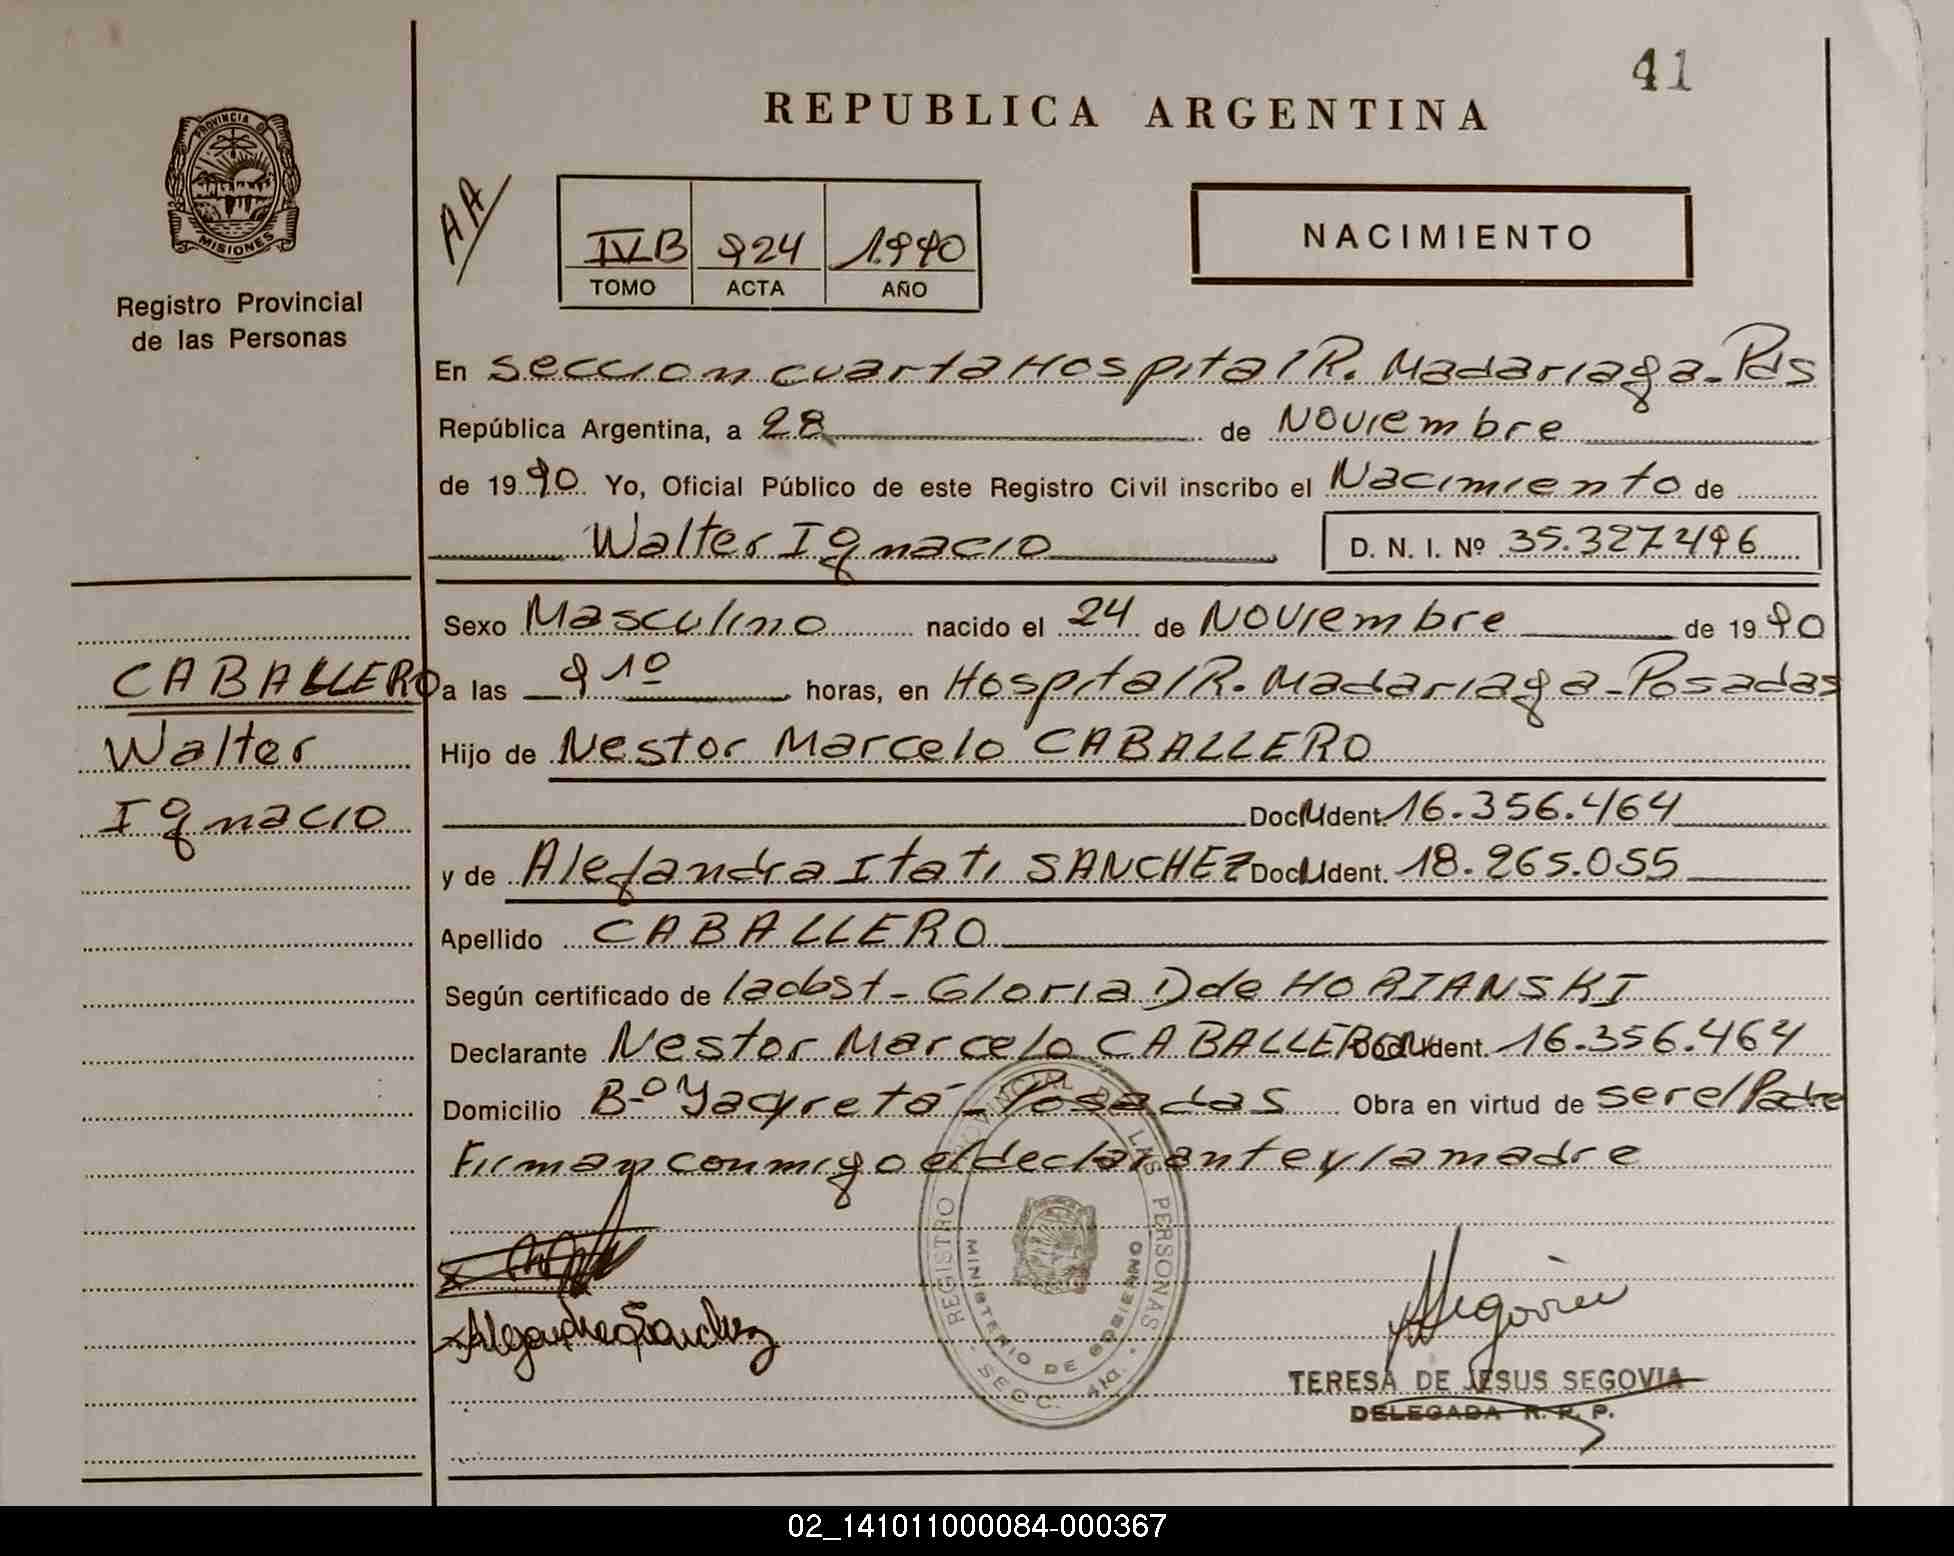 41
REPUBLICA ARGENTINA
PROVINCIA D
MISIONES
Registro Provincial
de las Personas
AA
IV B 924 1.990
TOMO ACTA AÑO
NACIMIENTO
En Seccion cuarta Hospital R. Madariaga - Pds
República Argentina, a 28 de Noviembre
de 1990 Yo, Oficial Público de este Registro Civil inscribo el Nacimiento de
Walter Ignacio D. N. I. Nº 35.327.496
Sexo Masculino nacido el 24 de Noviembre de 1990
CABALLERO
Walter
Ignacio
a las 9 10 horas, en Hospital R. Madariaga - Posadas
Hijo de Nestor Marcelo CABALLERO
Doc. Ident. 16.356.464
y de Alejandra Itati SANCHEZ Doc. Ident. 18.265.055
Apellido CABALLERO
Según certificado de la obst - Gloria D de HORIANSKI
Declarante Nestor Marcelo CABALLERO Doc. Ident. 16.356.464
Domicilio Bº Yacyreta - Posadas Obra en virtud de ser el Padre
Firman conmigo el declarante y la madre
Alejandra Sanchez
REGISTRO PROVINCIAL DE LAS PERSONAS
MINISTERIO DE GOBIERNO
SECC. 4ta.
Segovia
TERESA DE JESUS SEGOVIA
DELEGADA R. P. P.
02_141011000084-000367